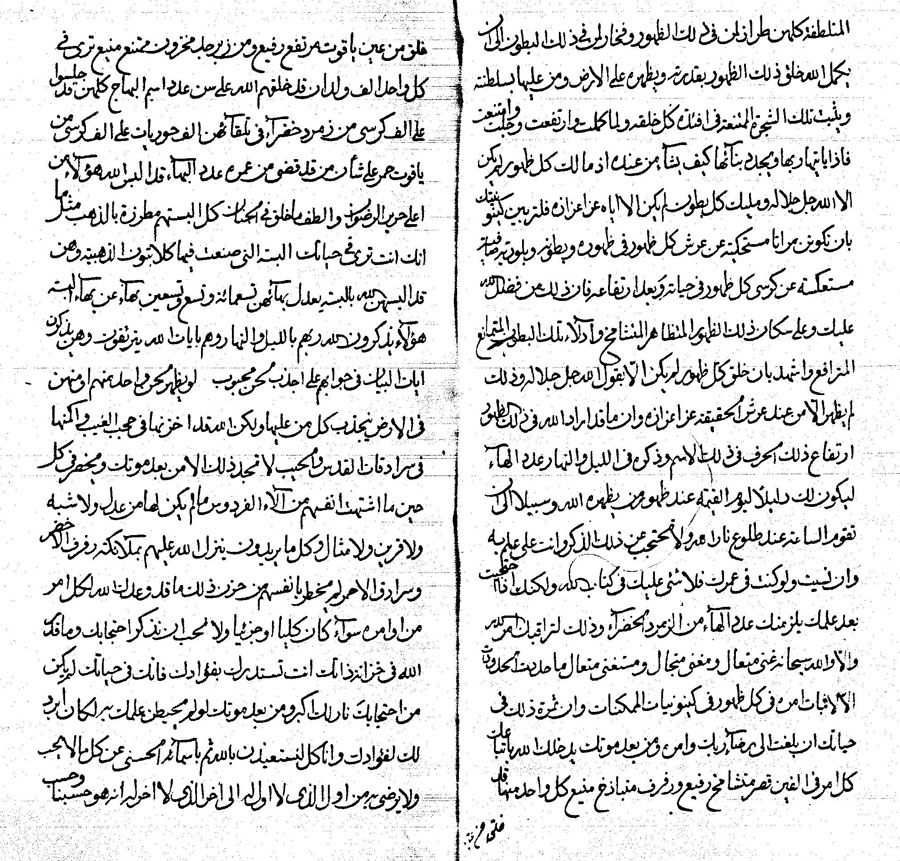 المتلطفة كلهن طرازلمن فى ذلك الظهور وفخارلمن فى ذلك البطون الى ان
يكمل الله خلق ذلك الظهور بقدرته ويظهره على الارض ومن عليها بسلطنته
ويثبت تلك الشجرة الممتنعة فى افئدة كل خلقه ولما كملت وارتفعت وجلت وامتنعت
فاذا ياتيها ربها ويجدد بنائها كيف يشآء من عنده اذ مالك كل ظهور لم يكن
الا الله جل جلاله ومليك كل بطون لم يكن الا اياه عز اعزازه فلتربين كينونيتك
بان تكونن مراتا مستحكية عن عرش كل ظهور فى ظهوره وبطونه وبلورية صافية
مستعكسة عن كرسى كل ظهور فى حيوته وبعد ارتفاعه فان ذلك من فضل الله
عليك وعلى سكان ذلك الظهور المتظاهر المتشامخ وادلاء تلك البطون المتمانع
المترافع واشهد بان خلق كل ظهور لم يكن الا بقول الله جل جلاله وذلك
لم يظهر الا من عند عرش الحقيقة عز اعزازه وان ما قد اراد الله فى ذلك الظهور
ارتفاع ذلك الحرف فى ذلك الاسم وذكره فى الليل والنهار عدد الهآء
ليكون لك دليلا ليوم القيمة عند ظهور من يظهره الله وسبيلا الى ان
تقوم الساعة عند طلوع ناراحد ولا تحتجب عن ذلك الذكر ان انت على علم به
وان نسيت ولو كنت فى عمرك فلا شئ عليك فى كتاب الله ولكنك اذا احتجبت
بعد علمك يلزمنك عدد الهآء من الزمرد الخضرآء وذلك لتراقبك امر الله
والا والله سبحانه غنى متعال ومغنى متجال ومستغنى متعال ما حدث الحدود
الا لاثبات امره فى كل ظهور فى كينونيات الممكنات وان ثمرة ذلك فى
حياتك ان يلغت الى رضآء ربك وامره ومن بعد موتك يدخلك الله باتباعك
كل امر فى الفين قصر متشامخ رفيع ورفرف متباذخ منيع كل واحد منها قد
خلق من عين ياقوت مرتفع رفيع ومن زبرجد مخزون ممتنع منيع ترى فى
كل واحد الف ولدان قد خلقهم الله على سن عدد اسم البهاج كلهن قد جلسوا
على الف كرسى من زمرد خضرآء فى تلقائهن الف حوريات على الف كرسى من
ياقوت حمر على شان من قد قضى من عمره عدد البهآء قد البس الله هؤلاء من
اعلى حرير الرضوان والطف ما خلق فى الجنان كل البستهم مطرزة بالذهب مثل ما
انك انت ترى فى حياتك البسة التى صنعت فيها كلابتون الذهبية وهن
قد البسهن الله بالبسة يعدل بهائهن تسعمائة وتسع وتسعين بهاء عن بهآء البسة
هؤلاء يذكرون الله ربهم بالليل والنهار وهم بايات الله يترنفون وهن يذكرن
ايات البيان فى جوابهم على اجذب لحن محبوب لو يظهر لحن واحد منهم او منهن
فى الارض ينجذب كل من عليها ولكن الله قد اخزنها فى حجب الغيب واكنها
فى سرادقات القدس ولحبيب لا تجد ذلك الا من بعد موتك ويحضر فى كل
حين ما اشتهت انفسهم من آلاء الفردوس ما لم يكن لها من عدل ولا شبه
ولا قرين ولا مثال وكل ما يريدون ينزل الله عليهم بملائكته رفرف الاخضر
وسرادق الاحمر لم يخطر بانفسهم من حزن ذلك ما قد وعدك الله لكل امر
من اوامره سوآء كان كليا او جزئيا ولا نحب ان نذكر احتجابك وما قدر
الله فى خزائنه ذلك انت تستدرك بفؤادك فانك فى حياتك لم يكن
من احتجابك نار لك اكبر ومن بعد موتك لو لم يحيطن علمك به لكان ابرد
لك لفؤادك وانا كل لنستعيذن بالله ثم باسمائه الحسنى عن كل ما لا يحب
ولا يرضى به من اول الذى لا اول له الى اخر الذى لا اخر له انه هو حسبنا وحسب